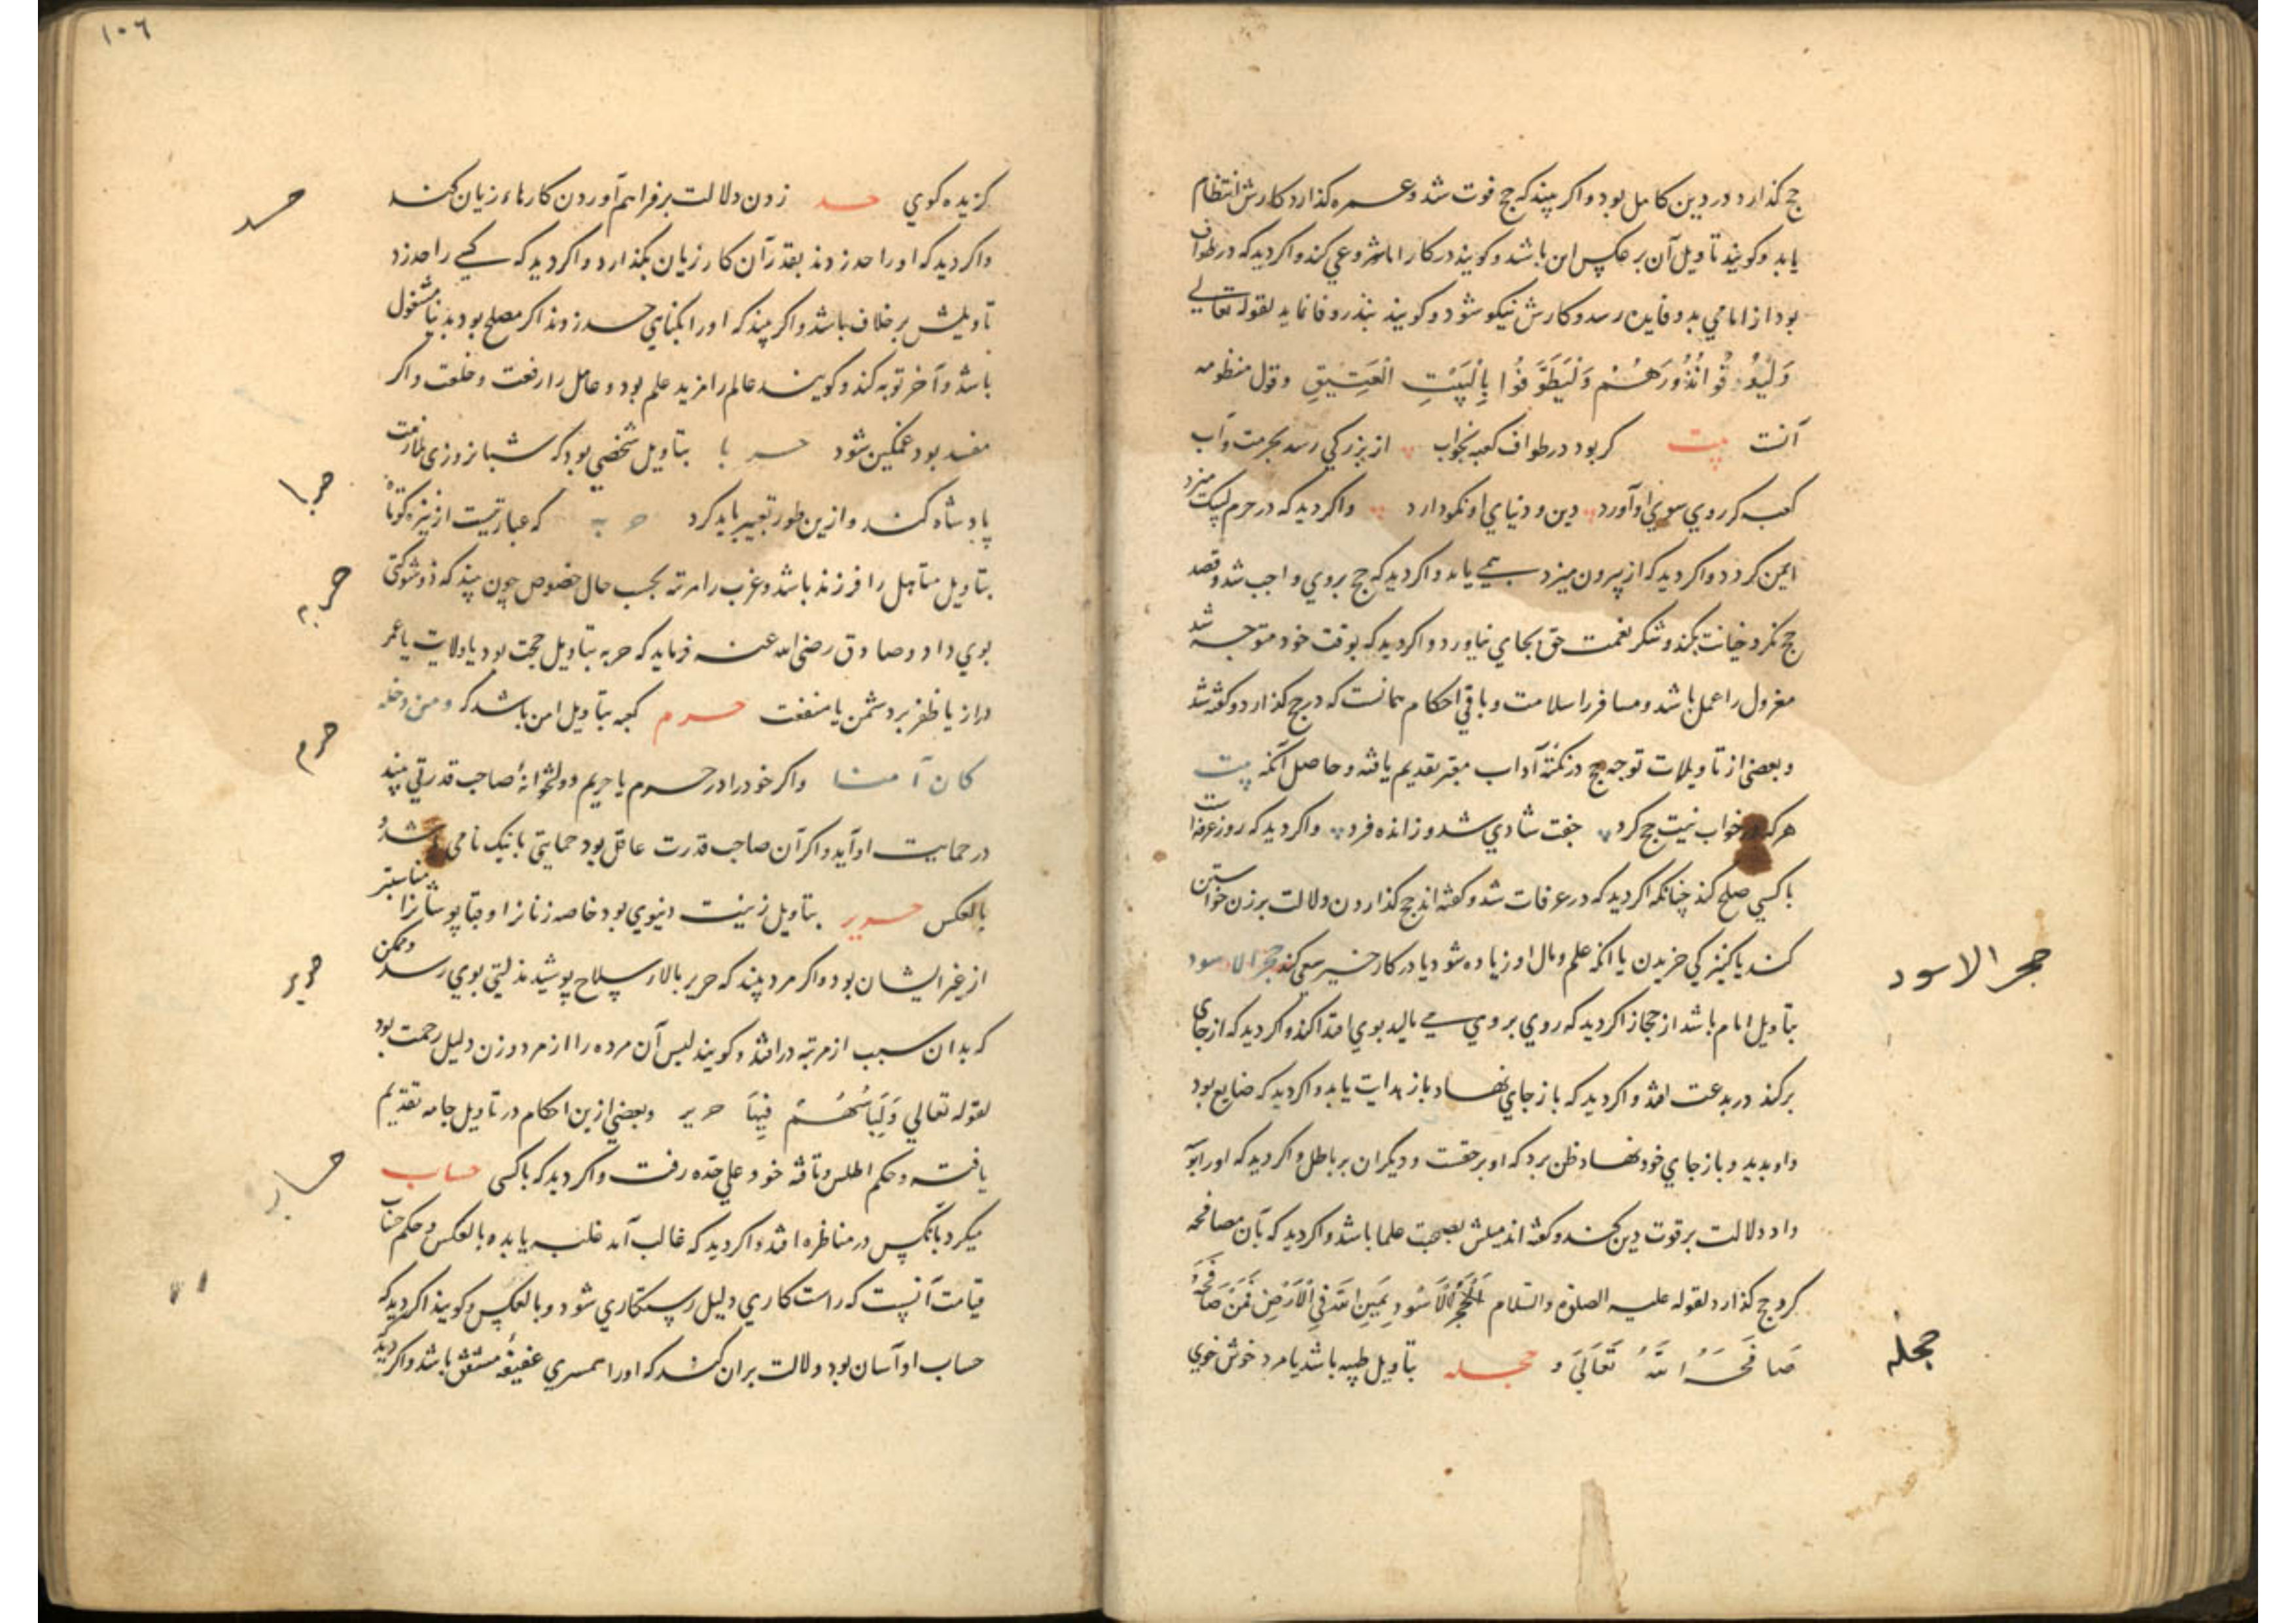 حج كذارد در دين كامل بود و اكر بيند كه حج فوت شد و عمره كذارد كارش انتظام
يابد و كويند تأويل آن بر عكس اين باشد و كويند در كار امام شروعي كند و اكر ديد كه در طواف
بود از امامي بدو فايده رسد و كارش نيكو شود و كويند بنذر وفا نمايد لقوله تعالي
وَلْيُوفُوا نُذُورَهُمْ وَلْيَطَّوَّفُوا بِالْبَيْتِ الْعَتِيقِ و قول منظومه
آنست بيت كر بود در طواف كعبه بخواب از بزركي رسد بحرمت و آب
كعبه كر روي سوي او آورد دين و دنياي او نكو دارد و اكر ديد كه در حرم لبيك ميزد
ايمن كردد و اكر ديد كه از بيرون ميزد بيمي يابد و اكر ديد كه حج بروي واجب شد و قصد
حج نكرد خيانت كند و شكر نعمت حق بجاي نياورد و اكر ديد كه بوقت خود متوجه شد
معزول را عمل باشد و مسافر را سلامت و باقي احكام همانست كه در حج كذارد و كفته شد
و بعضي از تأويلات توجه حج در نكتهٔ آداب معبر تقديم يافته و حاصل آنكه بيت
هركه در خواب نيت حج كرد جفت شادي شد و ز انده فرد و اكر ديد كه روز عرفه است
با كسي صلح كند چنانكه اكر ديد كه در عرفات شد و كفته اند حج كذاردن دلالت بر زن خواستن
كند يا كنيزكي خريدن يا آنكه علم و مال او زياده شود يا در كار خير سعي كند حجر الاسود
بتأويل امام باشد از حجاز اكر ديد كه روي بروي مي ماليد بوي اقتدا كند و اكر ديد كه از جاي
بركند در بدعت افتد و اكر ديد كه باز جاي نهاد باز هدايت يابد و اكر ديد كه ضايع بود
و او بديد و باز جاي خود نهاد ظن برد كه او بر حقست و ديكران بر باطل و اكر ديد كه او را
داد دلالت بر قوت دين كند و كفته اند ميلش بصحبت علما باشد و اكر ديد كه بآن مصافحه
كرد حج كذارد لقوله عليه الصلوة والسلام اَلْحَجَرُ الْاَسْوَد يَمِين اللهِ فِي الْاَرْضِ فَمَنْ صَافَحَهُ
صَافَحَهُ اللهُ تَعَالَى و حجله بتأويل طيبه باشد يا مرد خوش خوي
حجر الاسود
حجله
١٠٦
كزيده كوي حد زدن دلالت بر فراهم آوردن كارهاء زيان كند
و اكر ديد كه او را حد زدند بقدر آن كار زيان بكذارد و اكر ديد كه كسي را حد زد
تأويلش بر خلاف باشد و اكر بيند كه او را بكناهي حد زدند اكر مصلح بود بدنيا مشغول
باشد و آخر توبه كند و كويند عالم را مزيد علم بود و عامل را رفعت و خلعت و اكر
مفسد بود غمكين شود حربا بتأويل شخصي بود كه شبانروزي ملازمت
پادشاه كند و ازين طور تعبير بايد كرد حربه كه عبارتيست از نيزه كوتاه
بتأويل متأهل را فرزند باشد و عزب را مرتبه بحسب حال خصوص چون بيند كه ذو شوكتي
بوي داد و صادق رضي الله عنه فرمايد كه حربه بتأويل حجت بود يا ولايت يا عمر
دراز يا ظفر بر دشمن يا منفعت حرم كعبه بتأويل امن باشد كه و من دخله
كان آمنا و اكر خود را در حرم يا حريم دولتخوانهٔ صاحب قدرتي بيند
در حمايت او آيد و اكر آن صاحب قدرت عاقل بود حمايتي با نيك نامي باشد و
بالعكس حرير بتأويل زينت دنيوي بود خاصه زنانرا و قباپوشانرا مناسبتر
از غير ايشان بود و اكر مرد بيند كه حرير بالاء سلاح پوشيد مذلتي بوي رسد و ممكن
كه بدان سبب از مرتبه درافتد و كويند لبس آن مرده را از مرد و زن دليل رحمت بود
لقوله تعالي وَلِبَاسُهُمْ فِيهَا حرير و بعضي ازين احكام در تأويل جامه تقديم
يافته و حكم اطلس و تافته خود علي حده رفت و اكر ديد كه با كسي حساب
ميكرد بآنكس در مناظره افتد و اكر ديد كه غالب آمد غلبه يابد و بالعكس و حكم حساب
قيامت آنست كه راست كاري دليل رستكاري شود و بالعكس و كويند اكر ديد كه
حساب او آسان بود دلالت بران كند كه او را همسري عفيفهٔ مشفق باشد و اكر ديد
حد
حربا
حربه
حرم
حرير
حساب